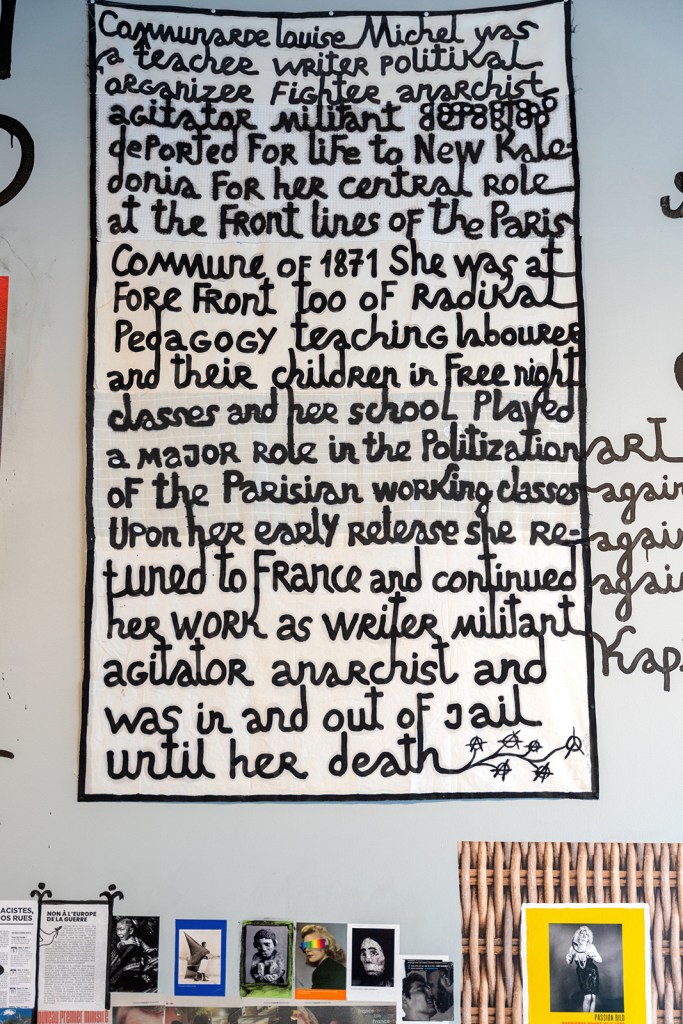 Communarde Louise Michel was
a teacher writer politikal
organizer fighter anarchist
agitator militant
deported for life to New Kale-
donia for her central role
at the front lines of the Paris
Commune of 1871 She was at
fore front too of radikal
Pedagogy teaching labourer
and their children in free night
classes and her school Played
a major role in the Politization
of the Parisian working classes
Upon her early release she re-
tuned to France and continued
her work as writer militant
agitator anarchist and
was in and out of jail
until her death
art
again
again
again
Kap
ACISTES,
OS RUES
NON À L'EUROPE
DE LA GUERRE
NOUVEAU PREMIER MINISTRE
PASSION BILD